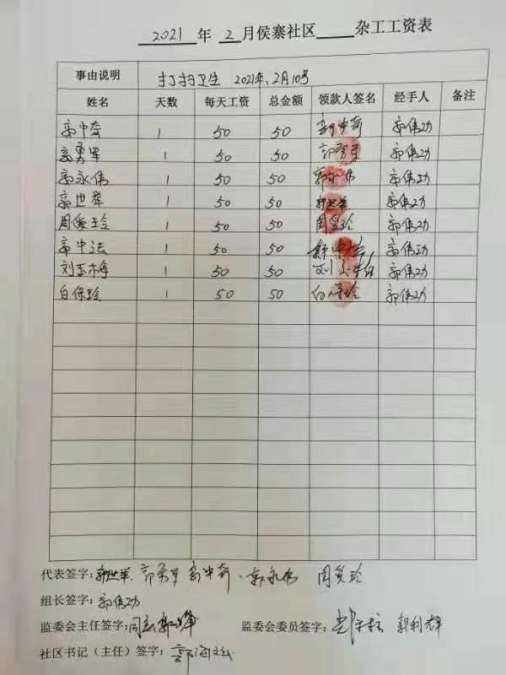 2021 年 2 月侯寨社区 杂工工资表
事由说明 打扫卫生 2021年2月10号
姓名 天数 每天工资 总金额 领款人签名 经手人 备注
郭中奇 1 50 50 郭中奇 郭伟功
郭勇军 1 50 50 郭伟功
郭永伟 1 50 50 郭永伟 郭伟功
郭世军 1 50 50 郭世军 郭伟功
周爱玲 1 50 50 周爱玲 郭伟功
郭中法 1 50 50 郭伟功
刘 1 50 50 刘 郭伟功
白保玲 1 50 50 白保玲 郭伟功
代表签字：郭世军 郭勇军 郭中奇 郭永伟 周爱玲
组长签字：郭伟功
监委会主任签字： 监委会委员签字：
社区书记（主任）签字：